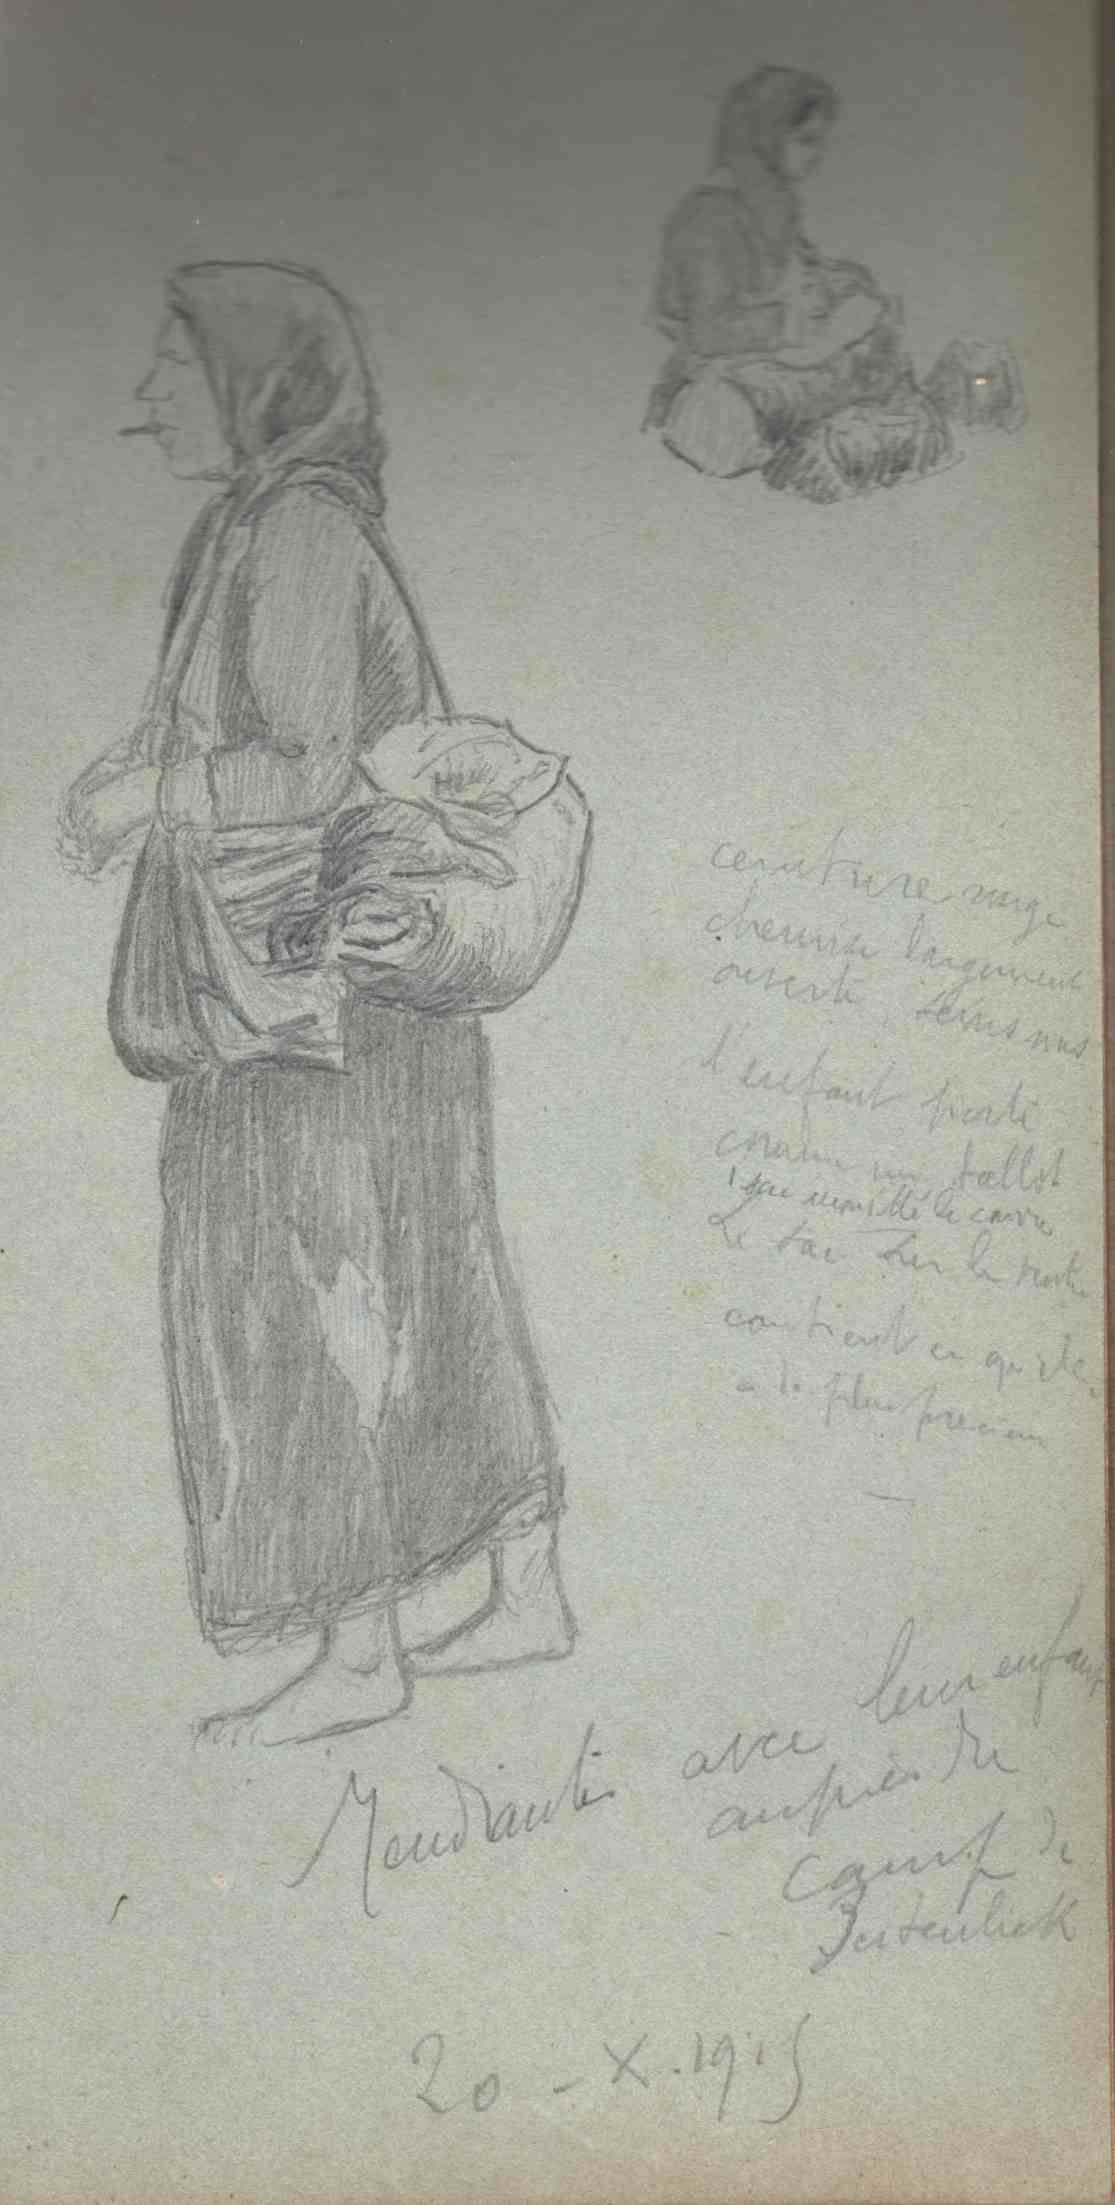 ceinture rouge
chemise largement
ouverte, seins nus
l'enfant porté
comme un ballot
le
Le sac sur le ventre
contient ce qu'elle
a de plus précieux
Mendiantes avec leur enfant
auprès du
camp de
Zeitenlick
20 - X. 1915